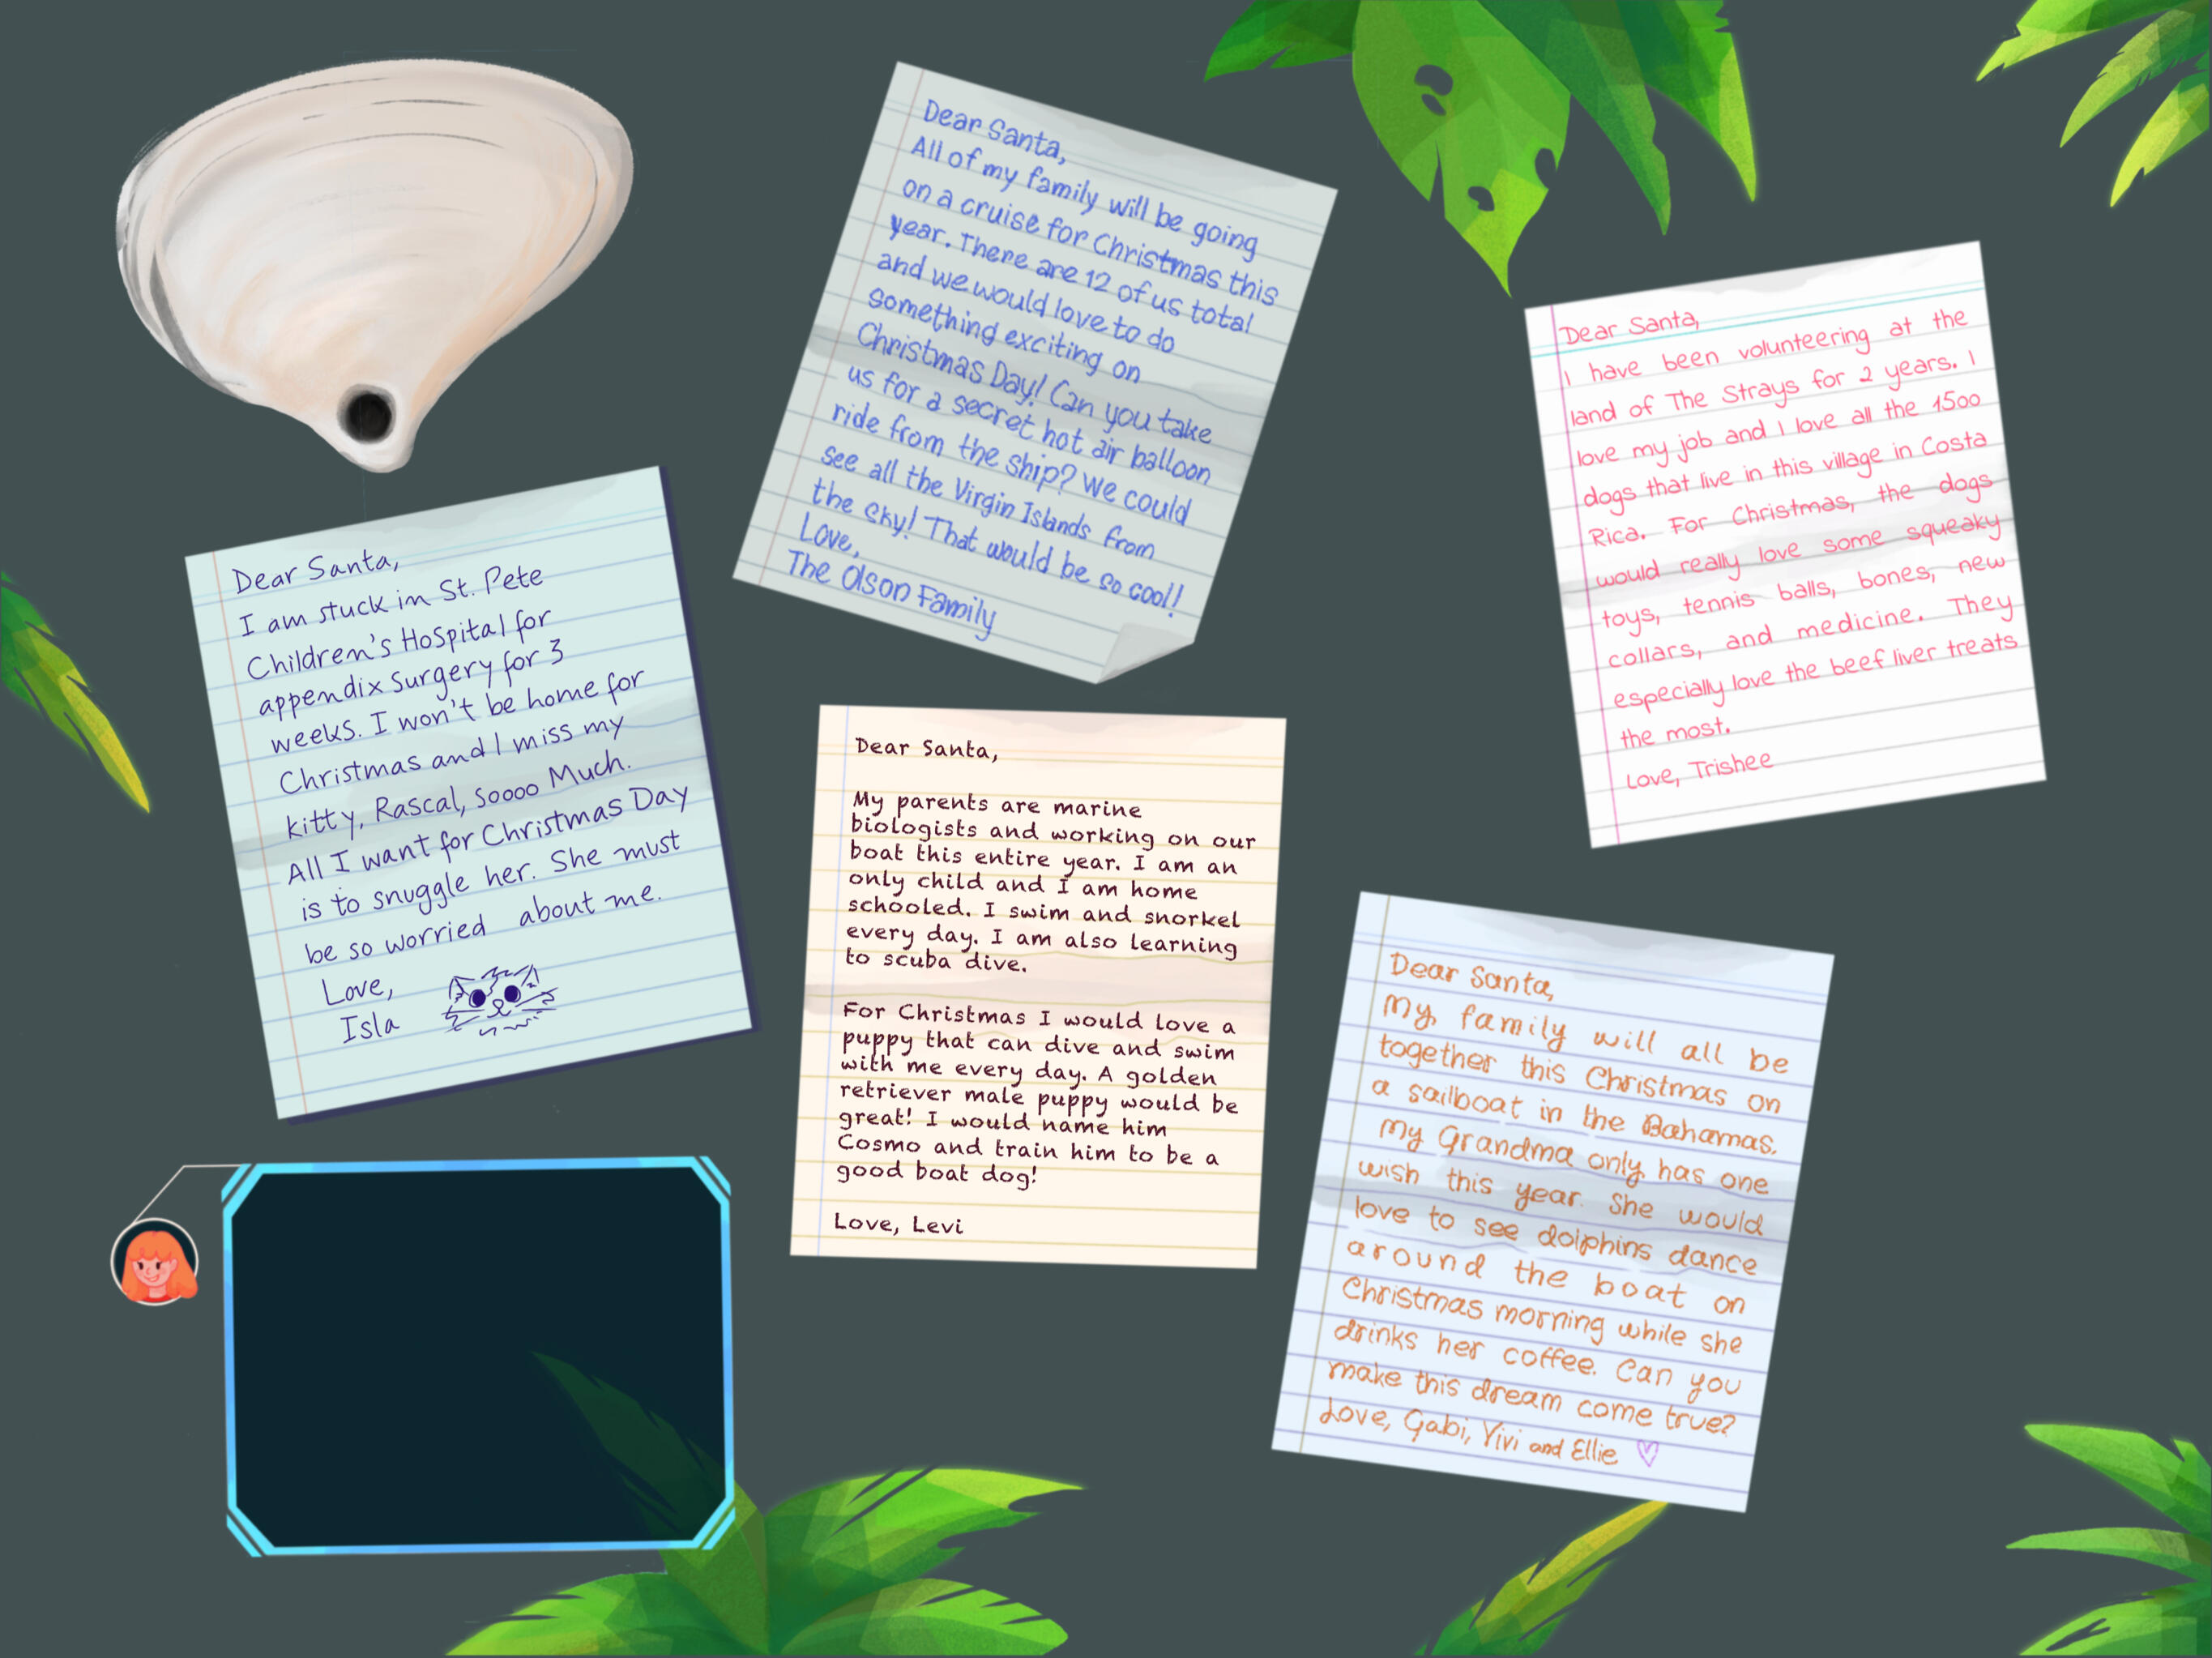 Dear Santa,
I am stuck in St. Pete
Children's Hospital for
appendix surgery for 3
weeks. I won't be home for
Christmas and I miss my
kitty, Rascal, soooo Much.
All I want for Christmas Day
is to snuggle her. She must
be so worried about me.
Love,
Isla
Dear Santa,
All of my family will be going
on a cruise for Christmas this
year. There are 12 of us total
and we would love to do
something exciting on
Christmas Day! Can you take
us for a secret hot air balloon
ride from the ship? We could
see all the Virgin Islands from
the sky! That would be so cool!
Love,
The Olson Family
Dear Santa,
My parents are marine
biologists and working on our
boat this entire year. I am an
only child and I am home
schooled. I swim and snorkel
every day. I am also learning
to scuba dive.
For Christmas I would love a
puppy that can dive and swim
with me every day. A golden
retriever male puppy would be
great! I would name him
Cosmo and train him to be a
good boat dog!
Love, Levi
Dear Santa,
I have been volunteering at the
land of The Strays for 2 years. I
love my job and I love all the 1500
dogs that live in this village in Costa
Rica. For Christmas, the dogs
would really love some squeaky
toys, tennis balls, bones, new
collars, and medicine. They
especially love the beef liver treats
the most.
Love, Trishee
Dear Santa,
My family will all be
together this Christmas on
a sailboat in the Bahamas.
My Grandma only has one
wish this year. She would
love to see dolphins dance
around the boat on
Christmas morning while she
drinks her coffee. Can you
make this dream come true?
Love, Gabi, Vivi and Ellie